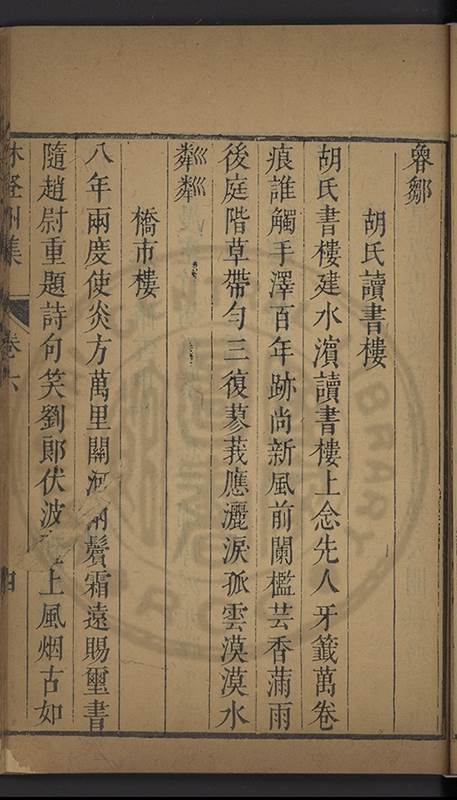 魯鄒
胡氏讀書樓
胡氏書樓建水濵讀書樓上念先人牙籖萬卷
痕誰觸手澤百年跡尚新風前闌檻芸香滿雨
後庭階草帶勻三復蓼莪應灑淚孤雲漠漠水
粼粼
橋市樓
八年兩度使炎方萬里關河兩鬢霜遠賜璽書
隨趙尉重題詩句笑劉郎伏波上風烟古如
集 卷六